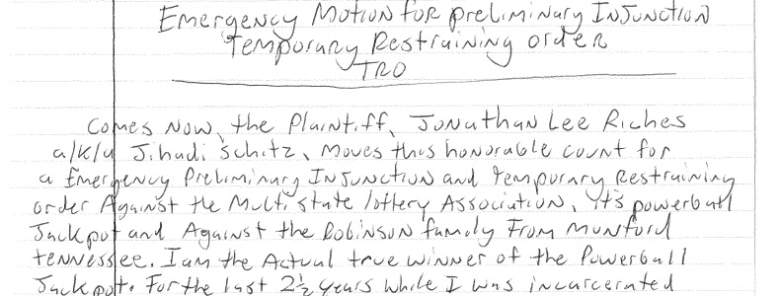 Emergency Motion for preliminary Injunction
Temporary Restraining order
TRO
Comes Now, the Plaintiff, Jonathan Lee Riches
a/k/a Jihadi Schitz, moves this honorable court for
a Emergency Preliminary Injunction and temporary Restraining
order Against the Multi state lottery Association, it's powerball
Jackpot and Against the Robinson family From munford
tennessee. I am the Actual true winner of the Powerball
Jackpot. For the last 2½ years while I was incarcerated